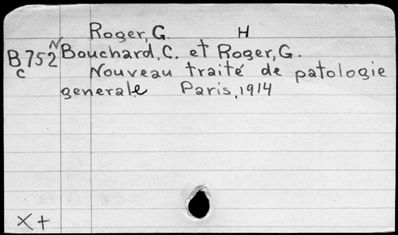 Roger, G. H
N
B752 Bouchard, C. et Roger, G.
C Nouveau traité de patologie
generale Paris, 1914
X+